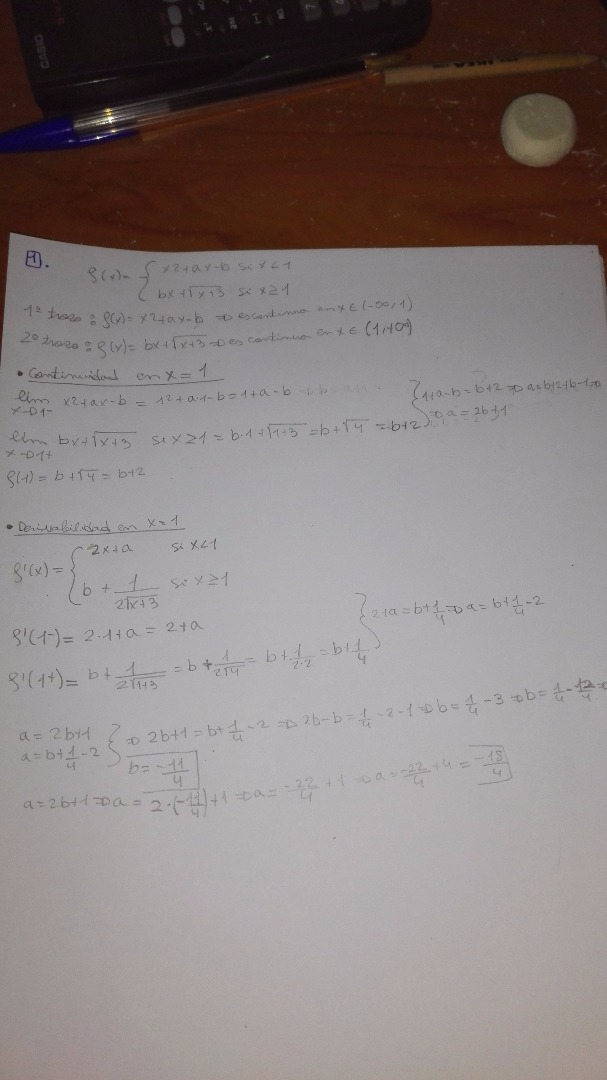 CASIO
1.
f(x)= { x2+ax-b si x<1
bx+√x+3 si x≥1
1º trozo: f(x)= x2+ax-b => es continua en x∈(-∞,1)
2º trozo: f(x)= bx+√x+3 => es continua en x∈ (1,+∞)
• Continuidad en x=1
lim x->1- x2+ax-b = 1²+a·1-b=1+a-b
lim x->1+ bx+√x+3 si x≥1 = b·1+√1+3 = b+√4 = b+2 } 1+a-b=b+2 => a=b+2+b-1 => => a=2b+1
f(1)= b+√4 = b+2
• Derivabilidad en x=1
f'(x)= { 2x+a si x<1
b + 1/2√x+3 si x≥1
f'(1-)= 2·1+a = 2+a
f'(1+)= b+ 1/2√1+3 = b+ 1/2√4 = b+ 1/2·2 = b+ 1/4 } 2+a=b+1/4 => a=b+1/4-2
a=2b+1
a=b+1/4-2 } => 2b+1=b+1/4-2 => 2b-b=1/4-2-1 => b=1/4-3 => b=1/4-12/4 =>
b=-11/4
a=2b+1 => a= 2·(-11/4)+1 => a= -22/4 +1 => a= -22/4 +4 = -18/4